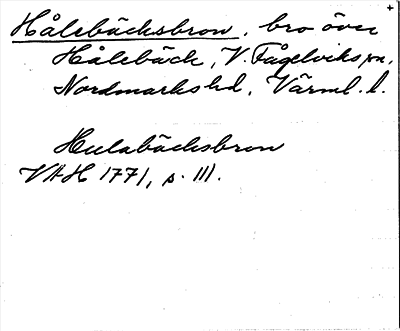 Hålebäcksbron, bro över +
Hålebäck, V. Fågelviks sn,
Nordmarks hd, Värml. l.
Hulabäcksbron
VAH 1771, s. 111.